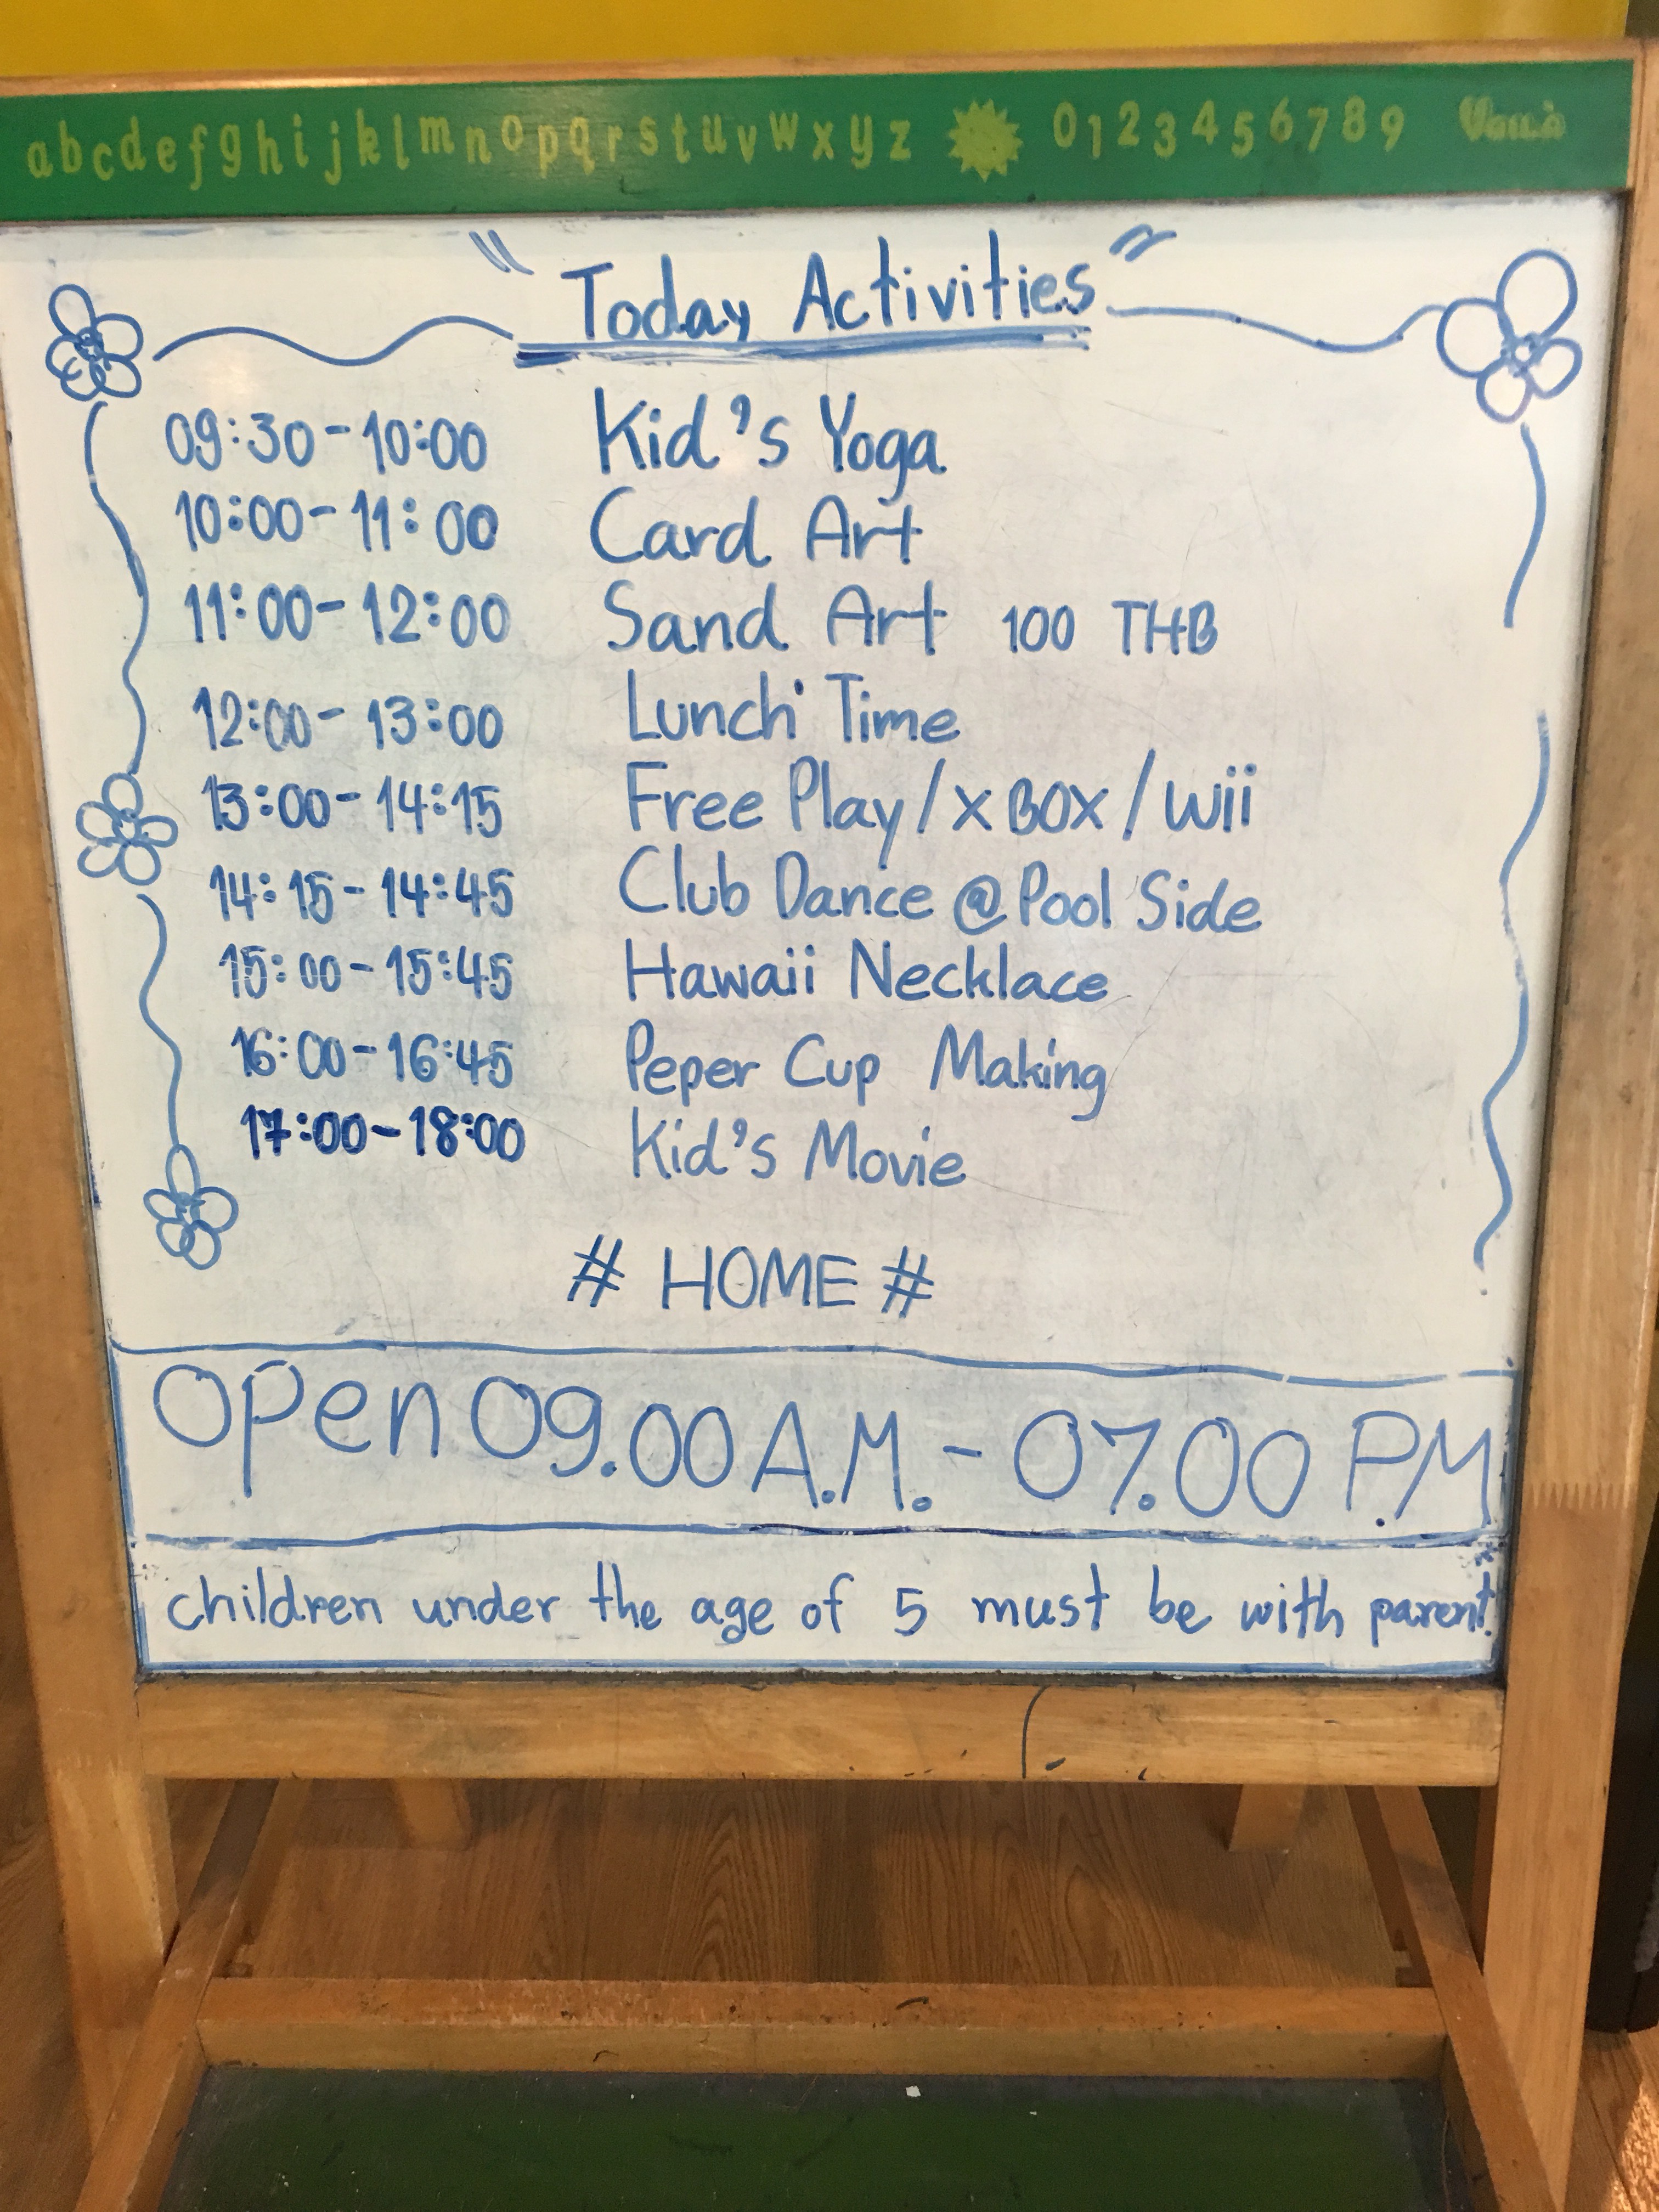 abcdefghijklmnopqrstuvwxyz 0123456789
"Today Activities"
09:30-10:00 Kid's Yoga
10:00-11:00 Card Art
11:00-12:00 Sand Art 100 THB
12:00-13:00 Lunch Time
13:00-14:15 Free Play/XBOX/Wii
14:15-14:45 Club Dance @Pool Side
15:00-15:45 Hawaii Necklace
16:00-16:45 Peper Cup Making
17:00-18:00 Kid's Movie
# HOME #
Open 09.00 A.M.-07.00 P.M
children under the age of 5 must be with parent.